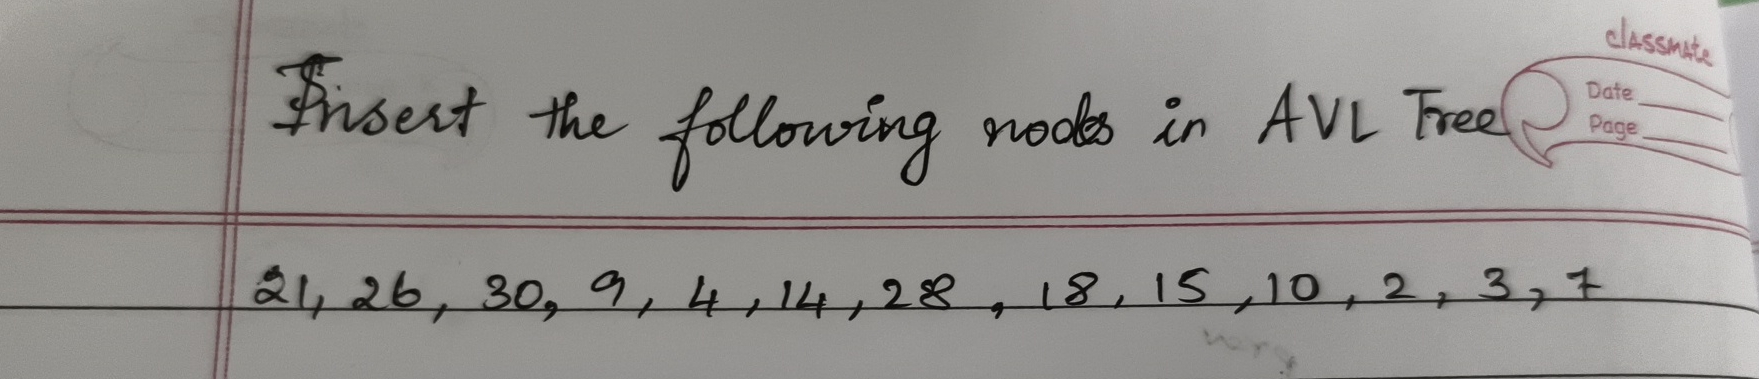 Insert the following nodes in AVL Tree
classmate
Date
Page
21, 26, 30, 9, 4, 14, 28, 18, 15, 10, 2, 3, 7